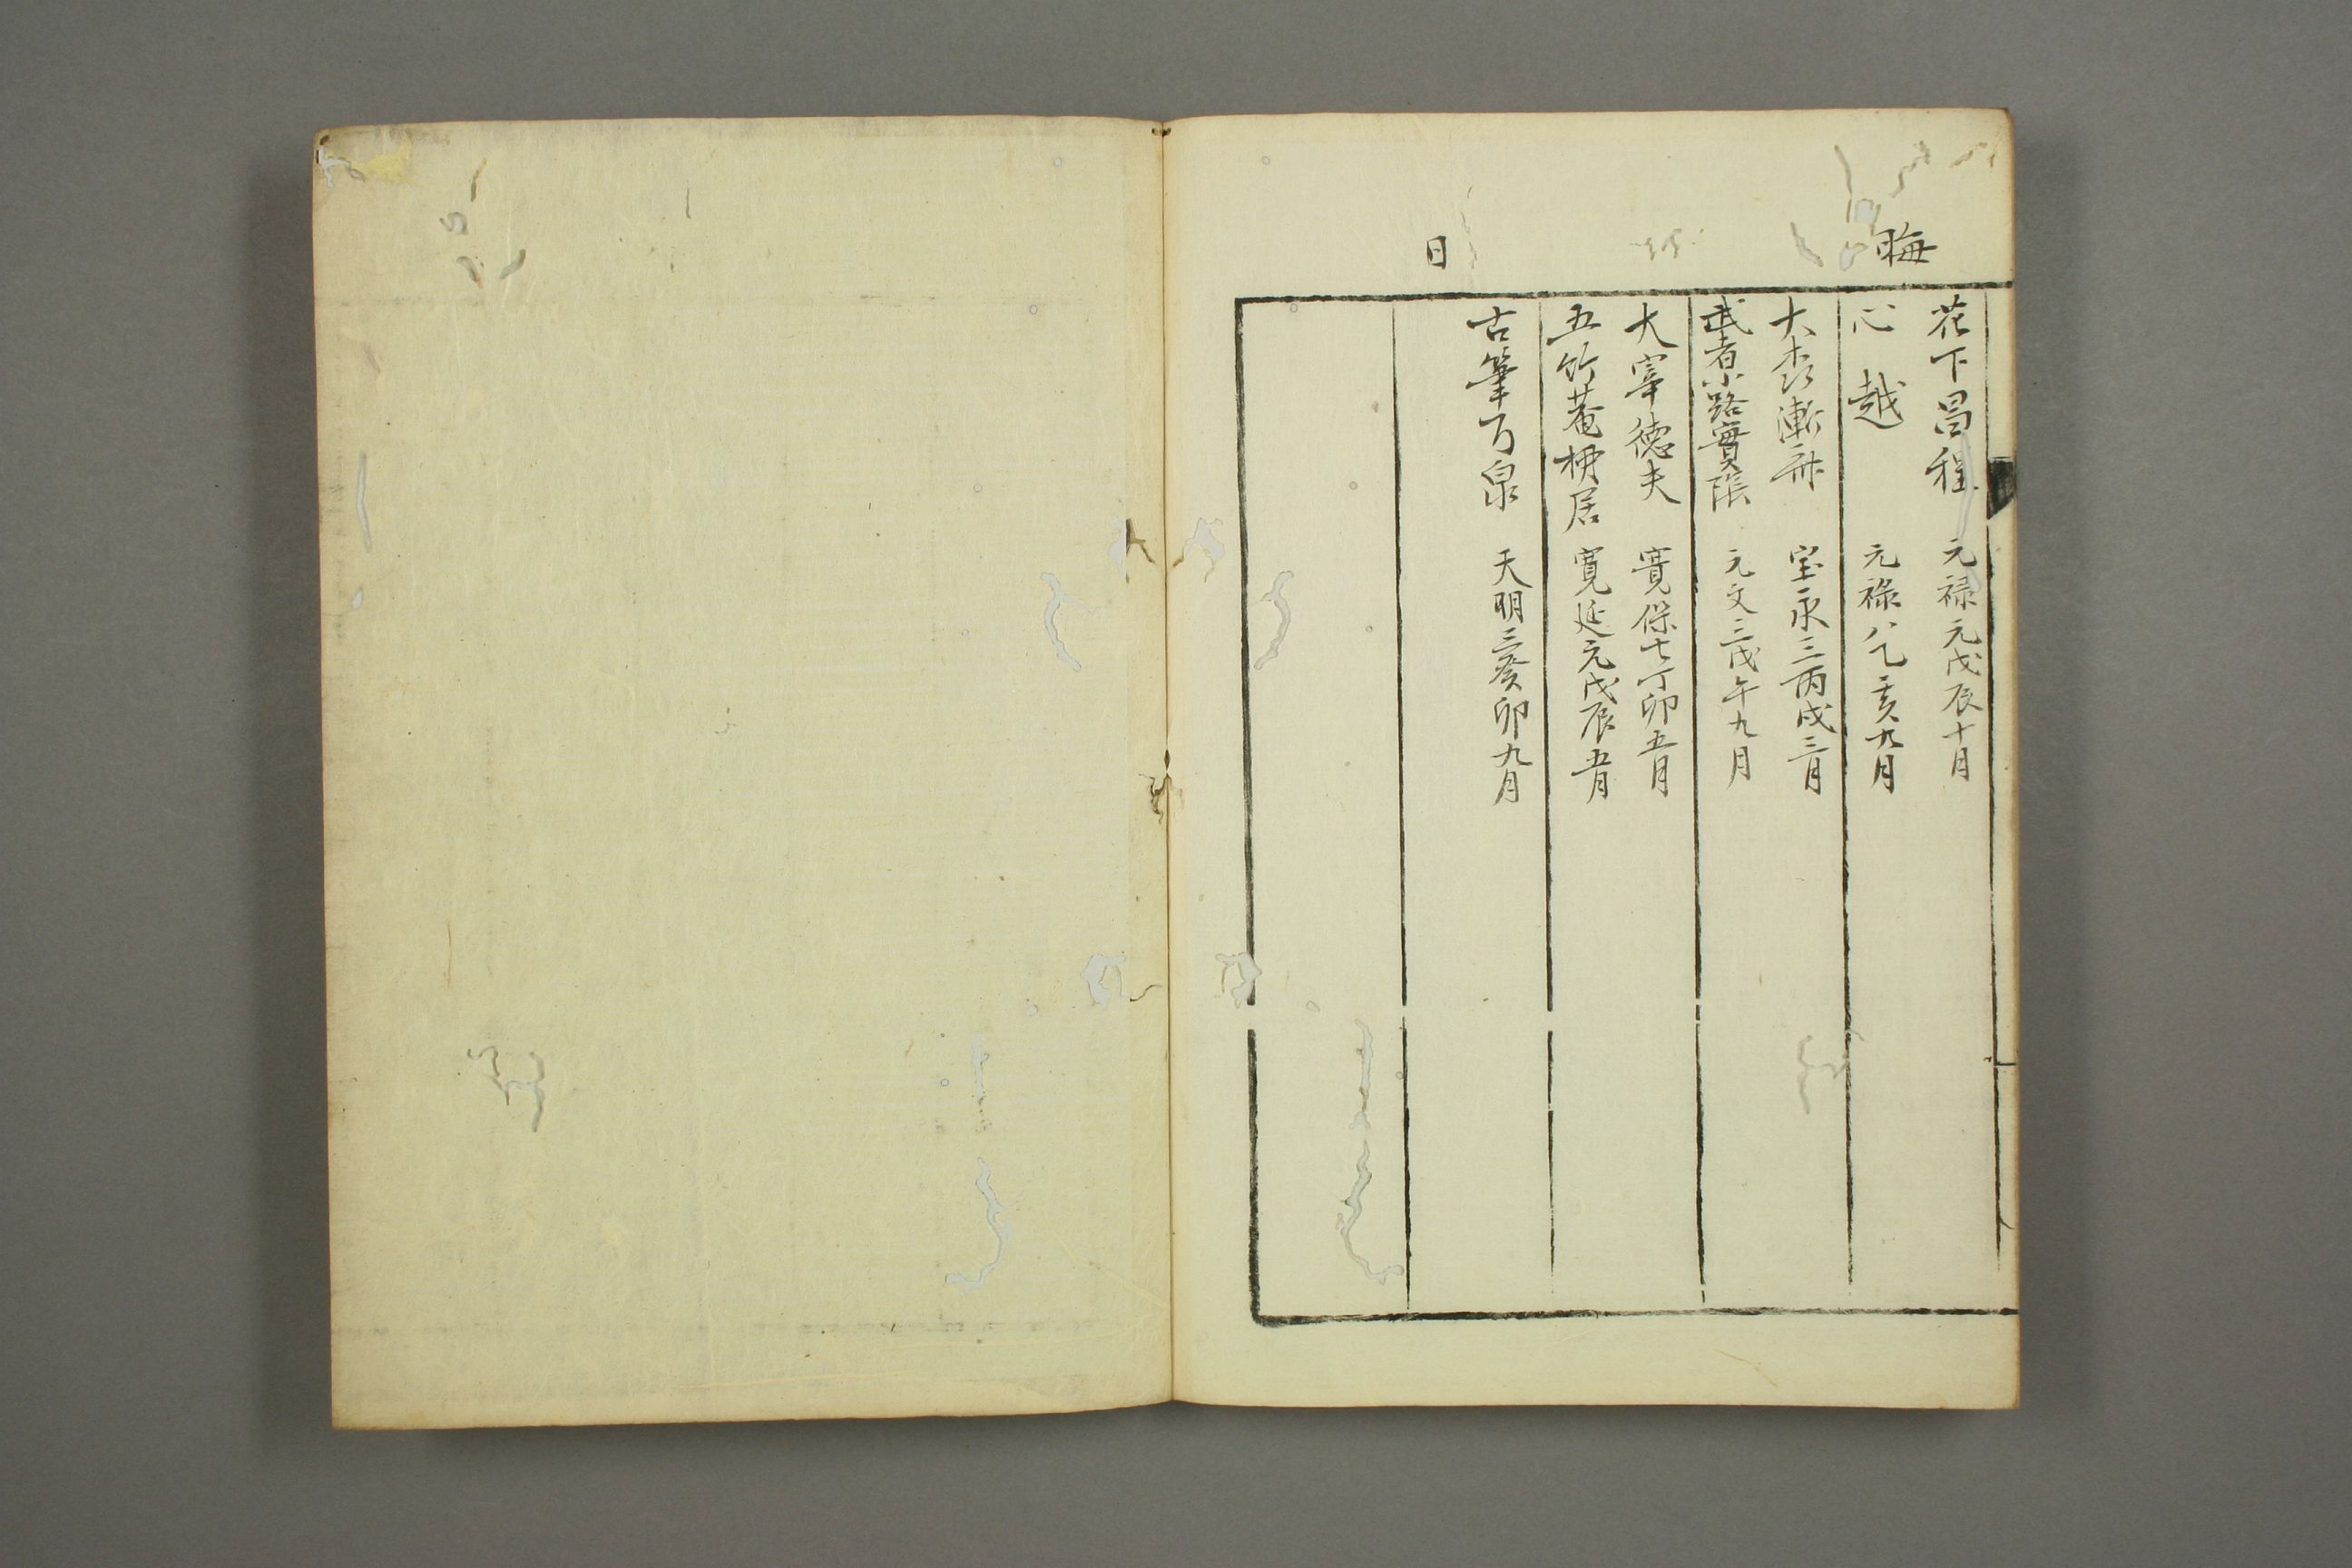 晦
日
花下昌程 元禄元戊辰十月
心越 元禄八乙亥九月
大森漸斎 宝永三丙戌三月
武者小路實陰 元文三戊午九月
太宰徳夫 寛保七丁卯五月
五竹菴柳居 寛延元戊辰五月
古筆了泉 天明三癸卯九月